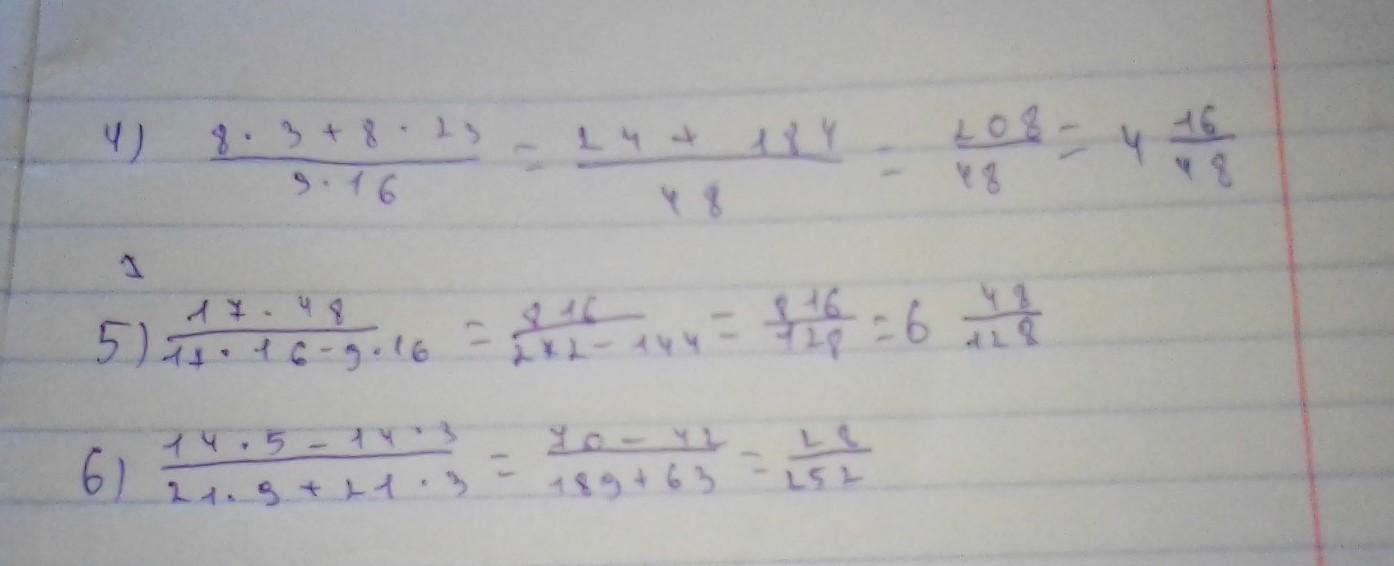 4) (8 · 3 + 8 · 23)/(3 · 16) = (24 + 184)/48 = 208/48 = 4 16/48
5) (17 · 48)/(17 · 16 - 9 · 16) = 816/(272 - 144) = 816/128 = 6 48/128
6) (14 · 5 - 14 · 3)/(21 · 9 + 21 · 3) = (70 - 42)/(189 + 63) = 28/252